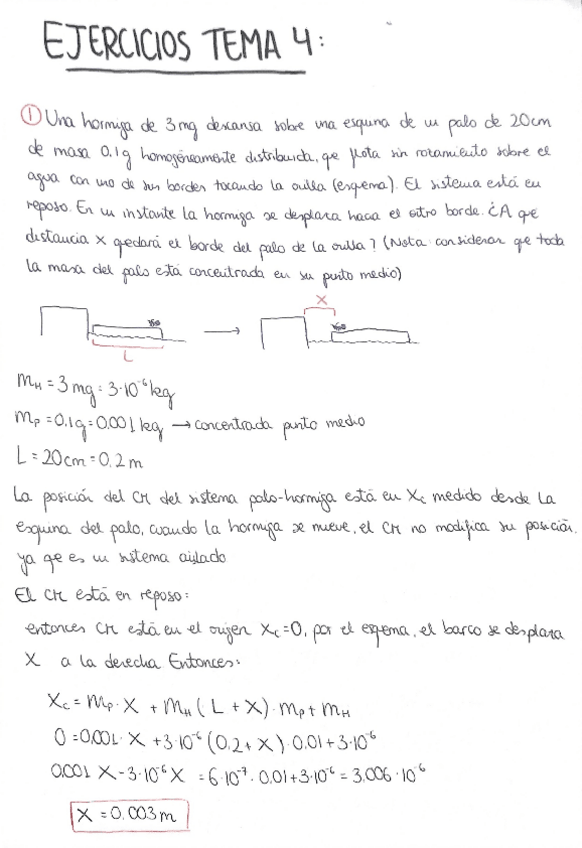 EJERCICIOS TEMA 4:
① Una hormiga de 3mg descansa sobre una esquina de un palo de 20cm
de masa 0.1g homogéneamente distribuida, qe flota sin rozamiento sobre el
agua con uno de sus bordes tocando la orilla (esqema). El sistema está en
reposo. En un instante la hormiga se desplaza hacia el otro borde. ¿A qe
distancia x qedará el borde del palo de la orilla? (Nota: considerar qe toda
la masa del palo está concentrada en su punto medio)
x
L
mH = 3mg = 3·10⁻⁶ kg
mP = 0.1g = 0.001 kg → concentrada punto medio
L = 20cm = 0.2 m
La posición del CM del sistema palo-hormiga está en Xc medido desde la
esquina del palo, cuando la hormiga se mueve, el CM no modifica su posición,
ya qe es un sistema aislado
El CM está en reposo:
entonces CM está en el origen Xc=0, por el esqema, el barco se desplaza
X a la derecha Entonces:
Xc = mP·X + mH (L + X)·mP + mH
0 = 0.001·X + 3·10⁻⁶ (0.2 + X)·0.01 + 3·10⁻⁶
0.001 X - 3·10⁻⁶ X = 6·10⁻⁷·0.01 + 3·10⁻⁶ = 3.006·10⁻⁶
X = 0.003 m